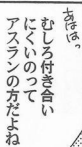 あはは。
むしろ付き合い
にくいのって
アスランの方だよね